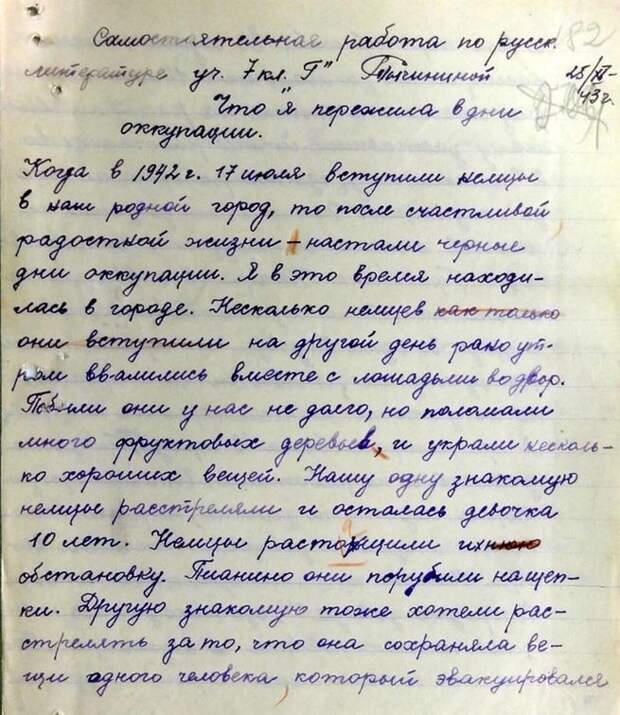 Самостоятельная работа по русск. 82
литературе уч. 7 кл. "Г" Тычининой 25/XI-
43 г.
Что "я" пережила в дни
оккупации.
Когда в 1942 г. 17 июля вступили немцы
в наш родной город, то после счастливой
радостной жизни – настали черные
дни оккупации. Я в это время находи-
лась в городе. Несколько немцев как только
они вступили на другой день рано ут-
ром ввалились вместе с лошадьми во двор.
Побыли они у нас не долго, но поломали
много фруктовых деревьев, и украли несколь-
ко хороших вещей. Нашу одну знакомую
немцы расстреляли и осталась девочка
10 лет. Немцы растащили ихнюю
обстановку. Пианино они порубили на щеп-
ки. Другую знакомую тоже хотели рас-
стрелять за то, что она сохраняла ве-
щи одного человека, который эвакуировался